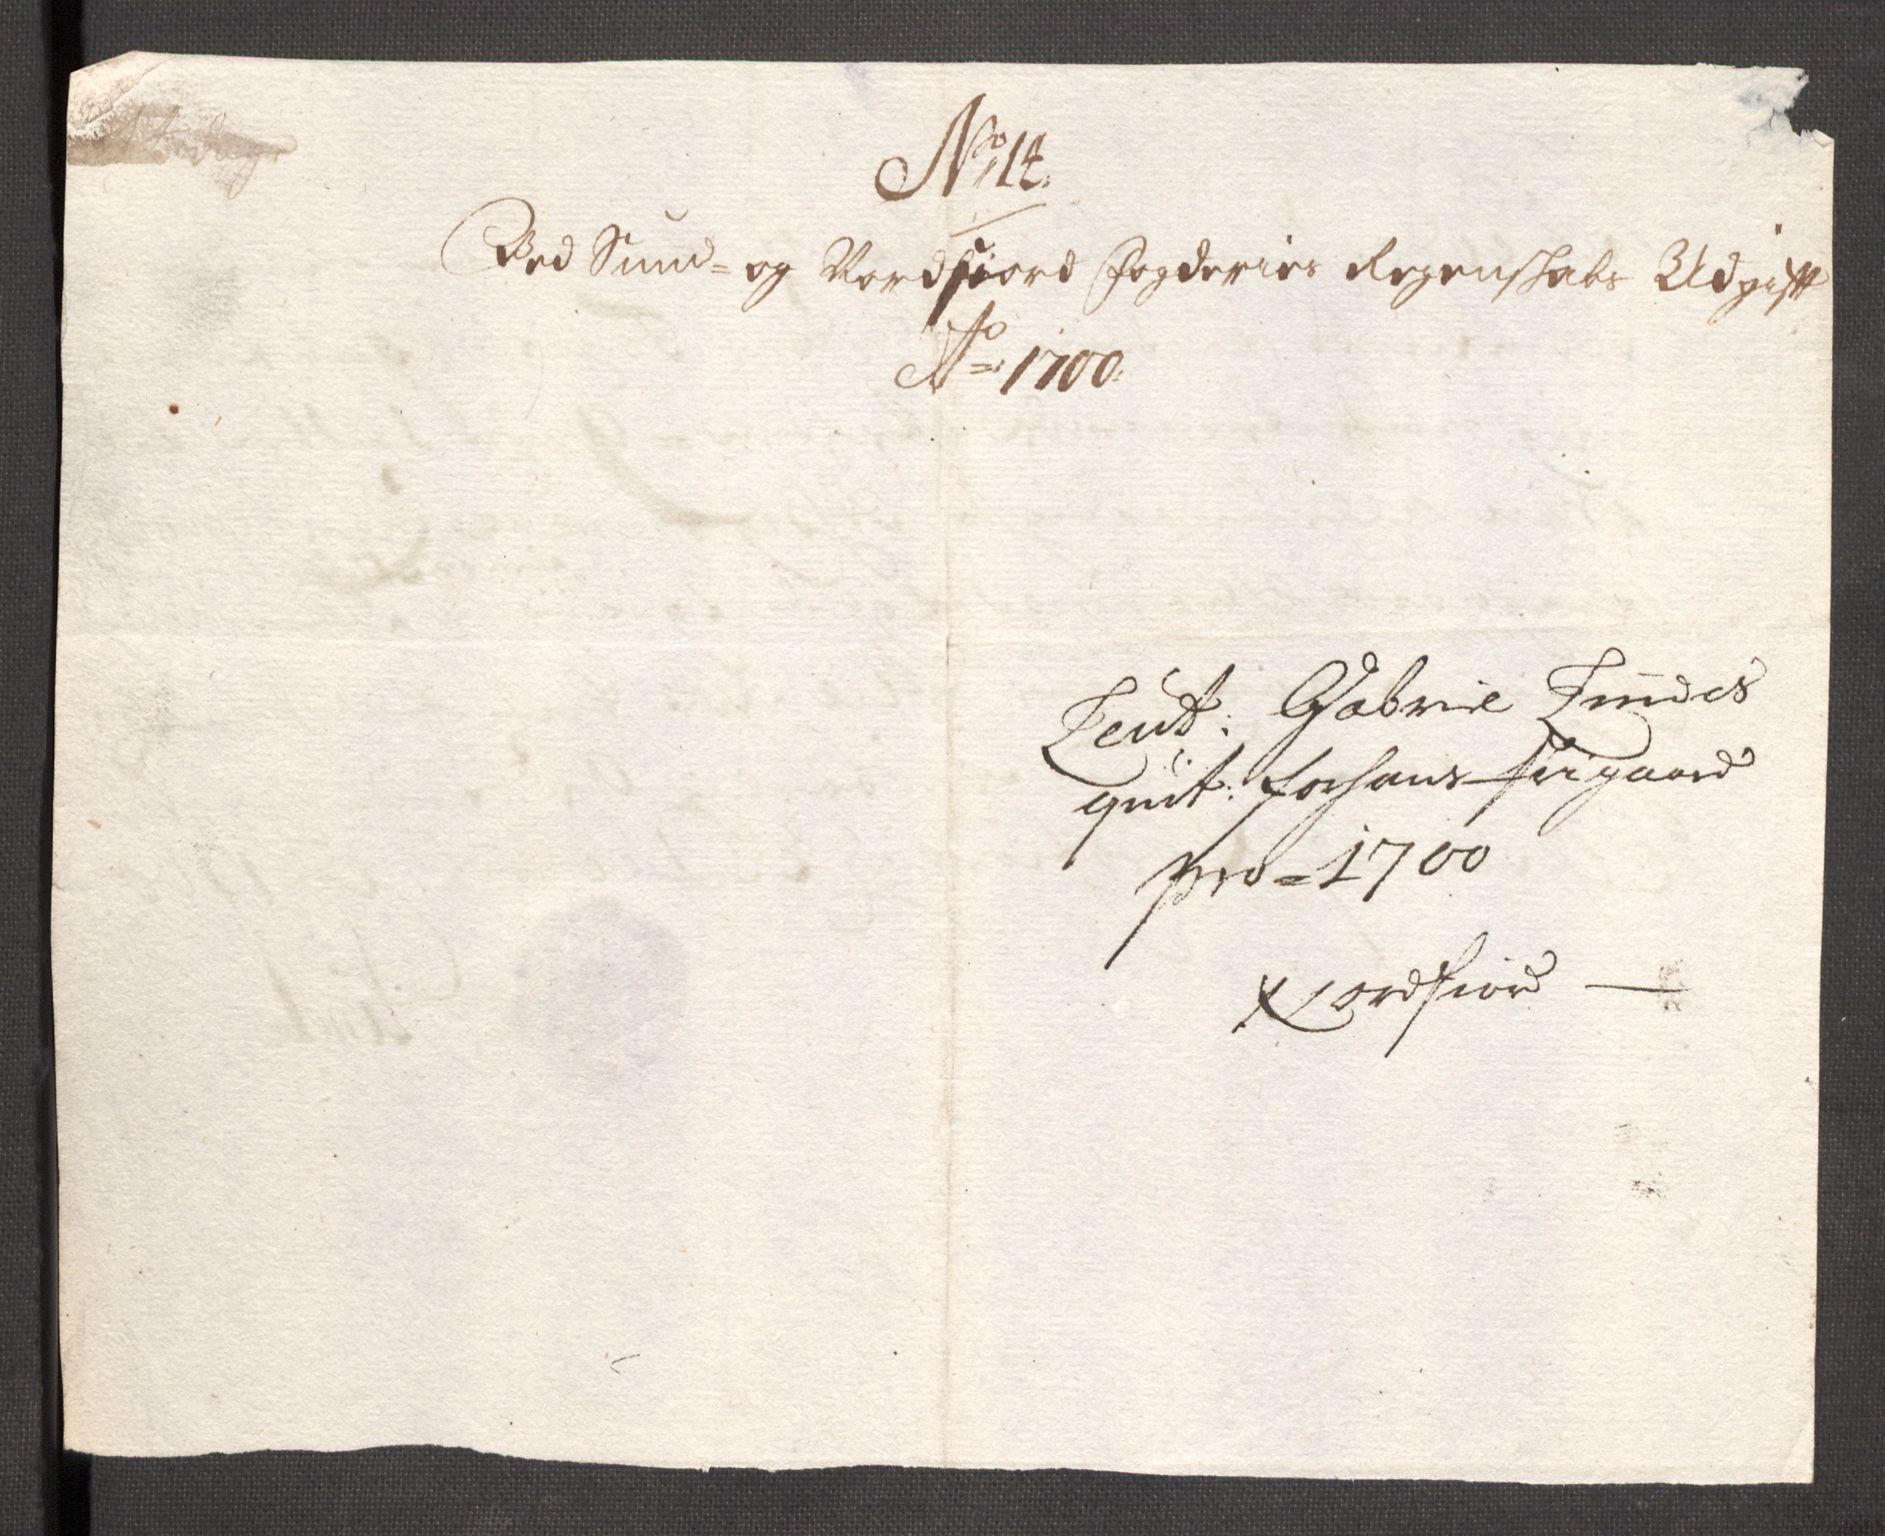 No 14.
Ved Sund- og Nordfiord Fogderies Regenskabs Udgift
Ao 1700.
Leut: Gabriel Lundes
quit: for hans frigaard
pro = 1700
Nordfiord —